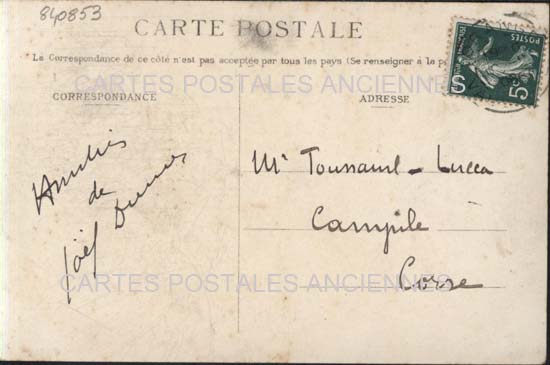 840853
CARTE POSTALE
La Correspondance de ce côté n'est pas acceptée par tous les pays (Se renseigner à la po
CARTES POSTALES ANCIENNES
CORRESPONDANCE
ADRESSE
POSTES
5
Amitiés
de
Mr Toussaint-Lucca
Campile
Corse
CARTES POSTALES ANCIENNES